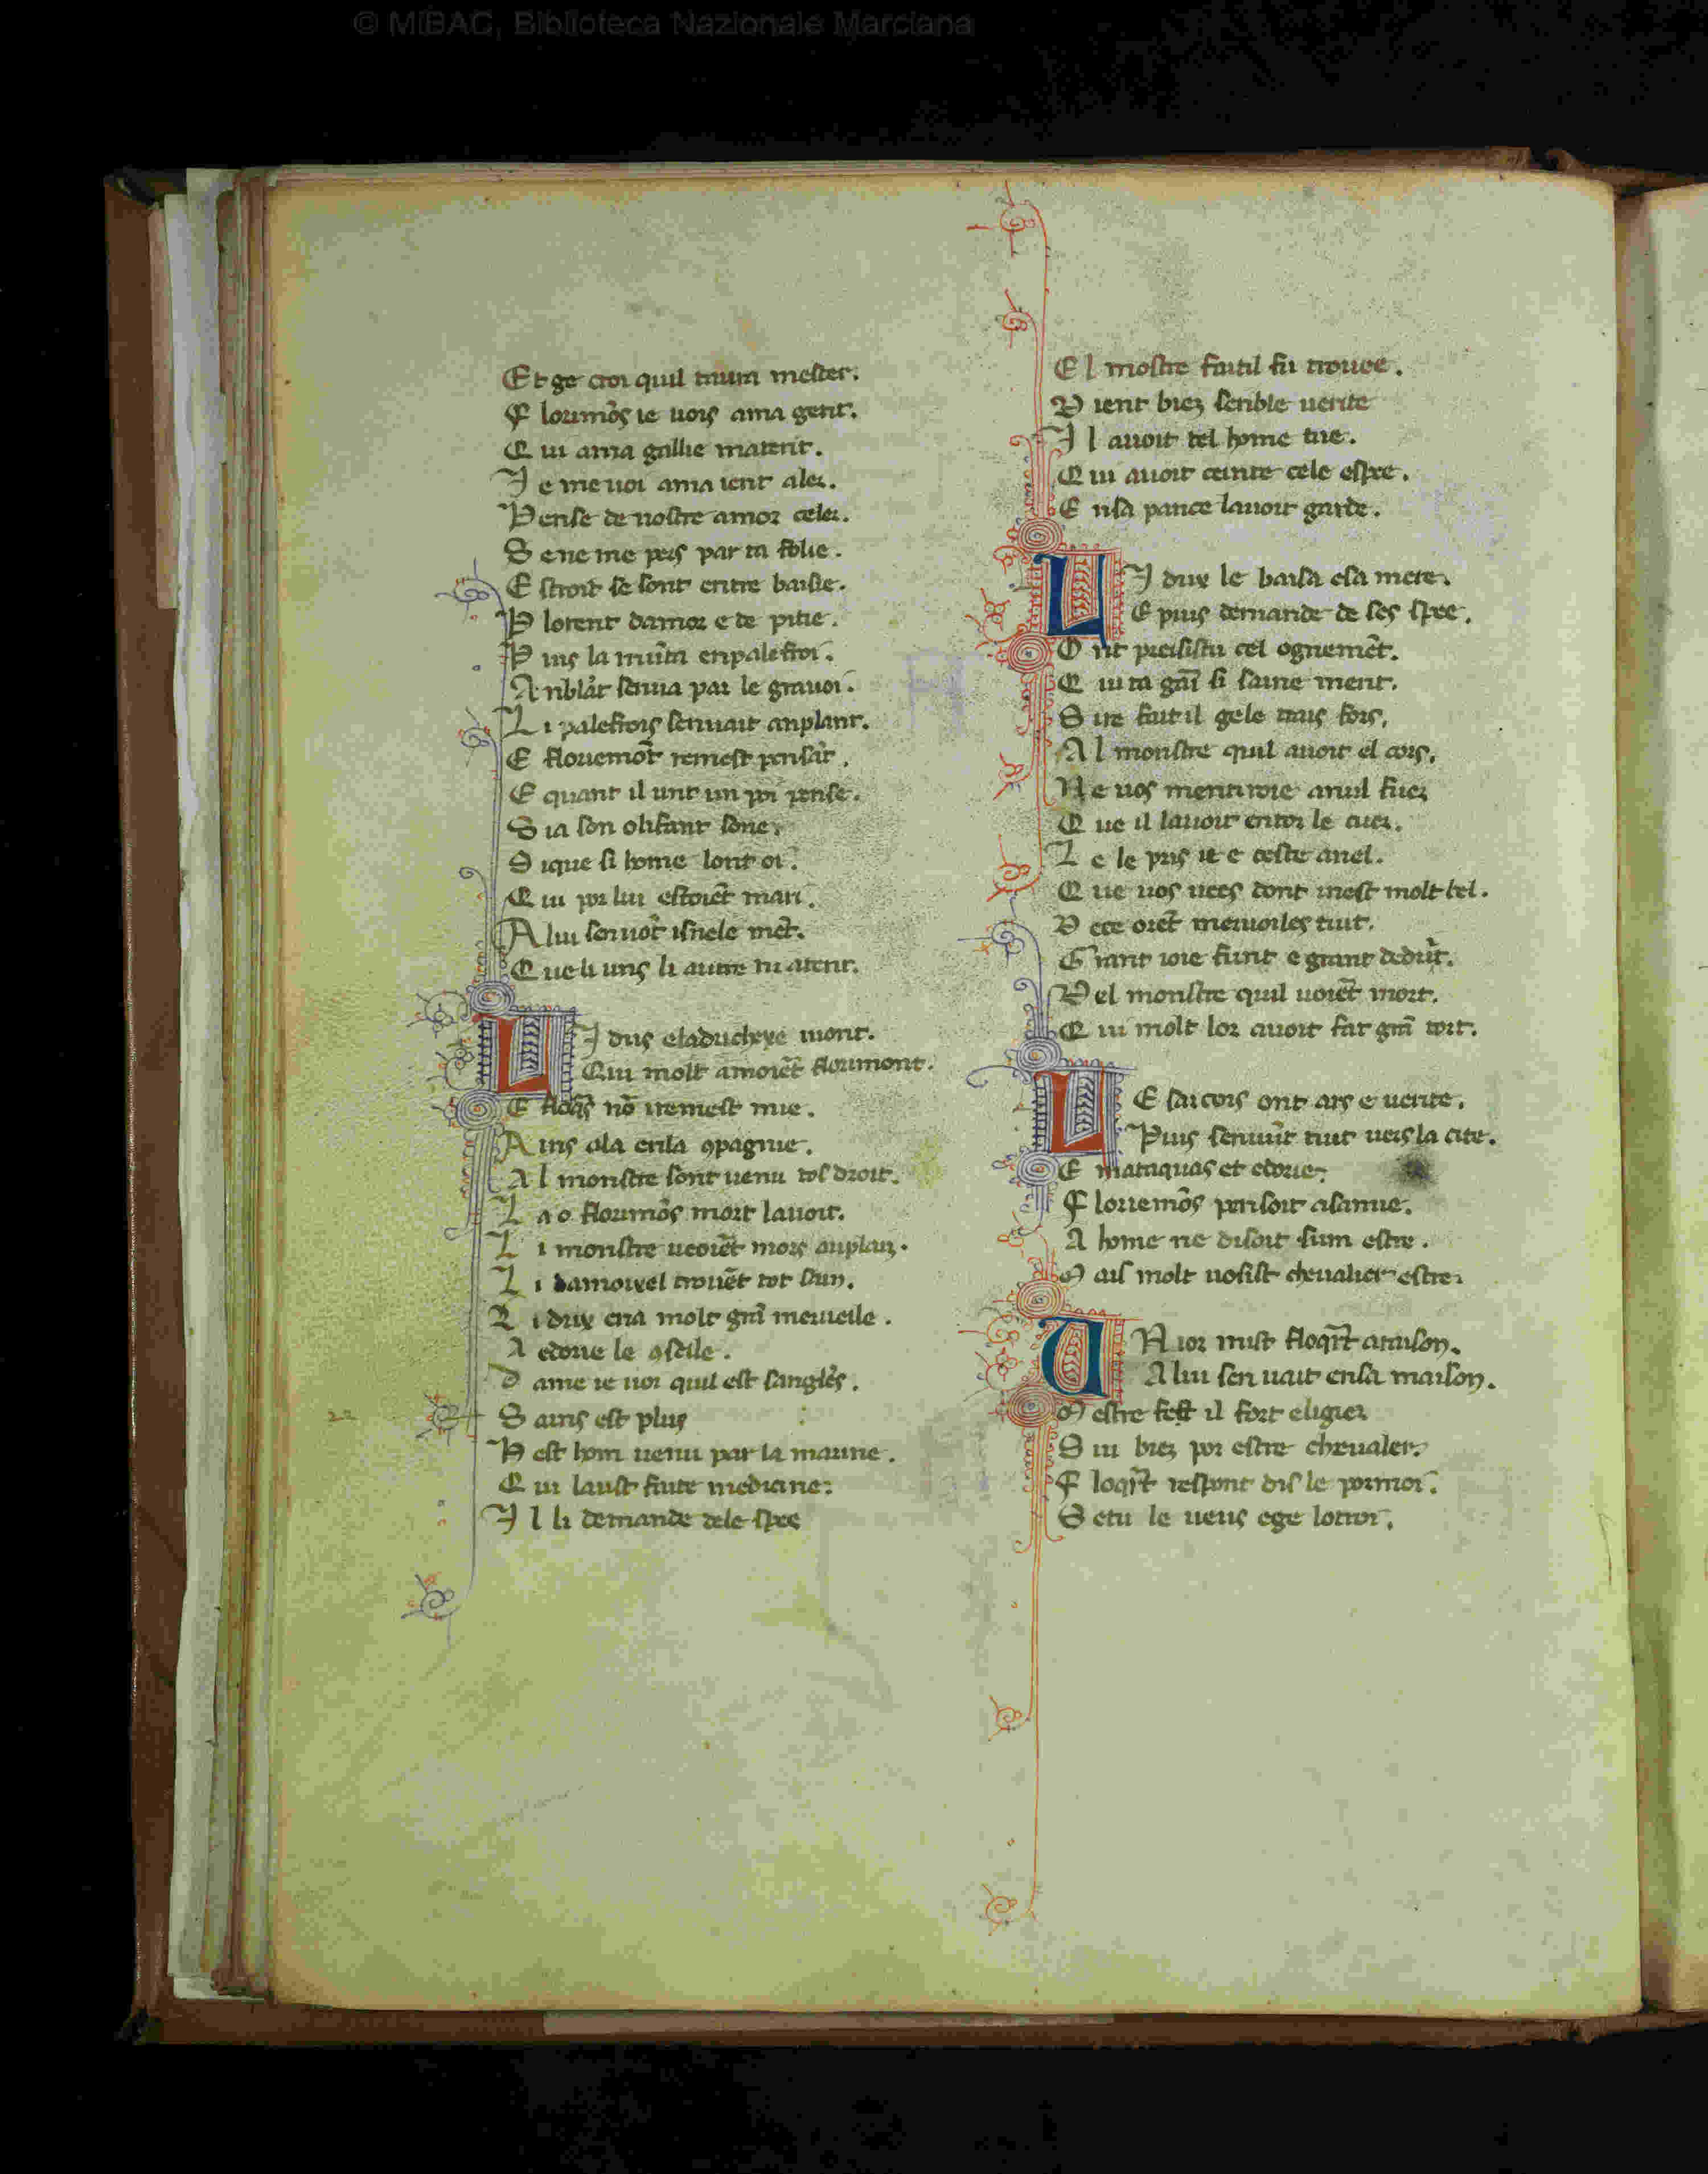 © MiBAC, Biblioteca Nazionale Marciana
Et ge croi quil maura mester.
F lorimõs ie uois ama gent.
Q ui ama gallie matent.
J e me uoi ama ient aler.
P ense de nostre amor celer.
S ene me pers par ta folie.
E stroit se sont entre baisie.
P lorent damor e de pitie.
P uis la mũta enpalefroi.
A nblãt senua par le grauoi.
L i palefrois senuait anplant.
E flouemõt remest pensãt.
E quant il unt un poi pense.
S ia son olifant sone.
S ique si home lont oi.
Q ui por lui estoiẽt mari.
A lui senuõt isnele mẽt.
Q ue li uns li autre ni atent.
L J dus eladuchexe mont.
Qui molt amoiẽt flourmont.
E floq̃s nõ iremest mie.
A ins ala enla ꝯpagnie.
A l monstre sont uenu tos droit.
L a o flourmõs mort lauoit.
L i monstre ueoiẽt mors anplain.
L i damoixel trouẽt tot sain.
L i dux ena molt grãt merueile.
A edoue le ꝯseile.
D ame ie uoi quil est sanglẽs.
S ains est plus
22
N est hom uenu par la marine.
Q ui laust faite medicine.
J l li demande dele spee
E l mostre faitil fu trouee.
D ient biez senble uerite
J l auoit tel home tue.
Q ui auoit ceinte cele espee.
E nsa pance lauoit garde.
L J dux le baisa esa mere.
E puis demande de ses spee.
O nt preisistu cel ognemẽt.
Q ui ta garĩ si saine ment.
S ire fait il gele trais fors,
A l monstre quil auoit el cors.
N e uos mentiroie anuil fuer
Q ue il lauoit entor le cuer.
L e le pris ie e ceste anel.
Q ue uos uees dont mest molt bel.
D ece oiẽt meruoiles tuit.
G rant ioie funt e grant deduĩt.
D el monstre quil uoiẽt mort.
Q ui molt lor auoit fat grãt tort.
L E sarcors ont ars e uente.
Puis senuũt tuit uers la cite.
E mataquas et edoue.
F louemõs pensoit asamie.
A home ne disoit sum estre.
M ais molt uosist cheualier estre.
A N ior mist floq̃rt araison.
A lui sen uait ensa maison.
M estre fet il fort eligier
S ui biez por estre chevaler.
F loq̃rt respont dis le pormoi.
S etu le ueus ege lotroi.